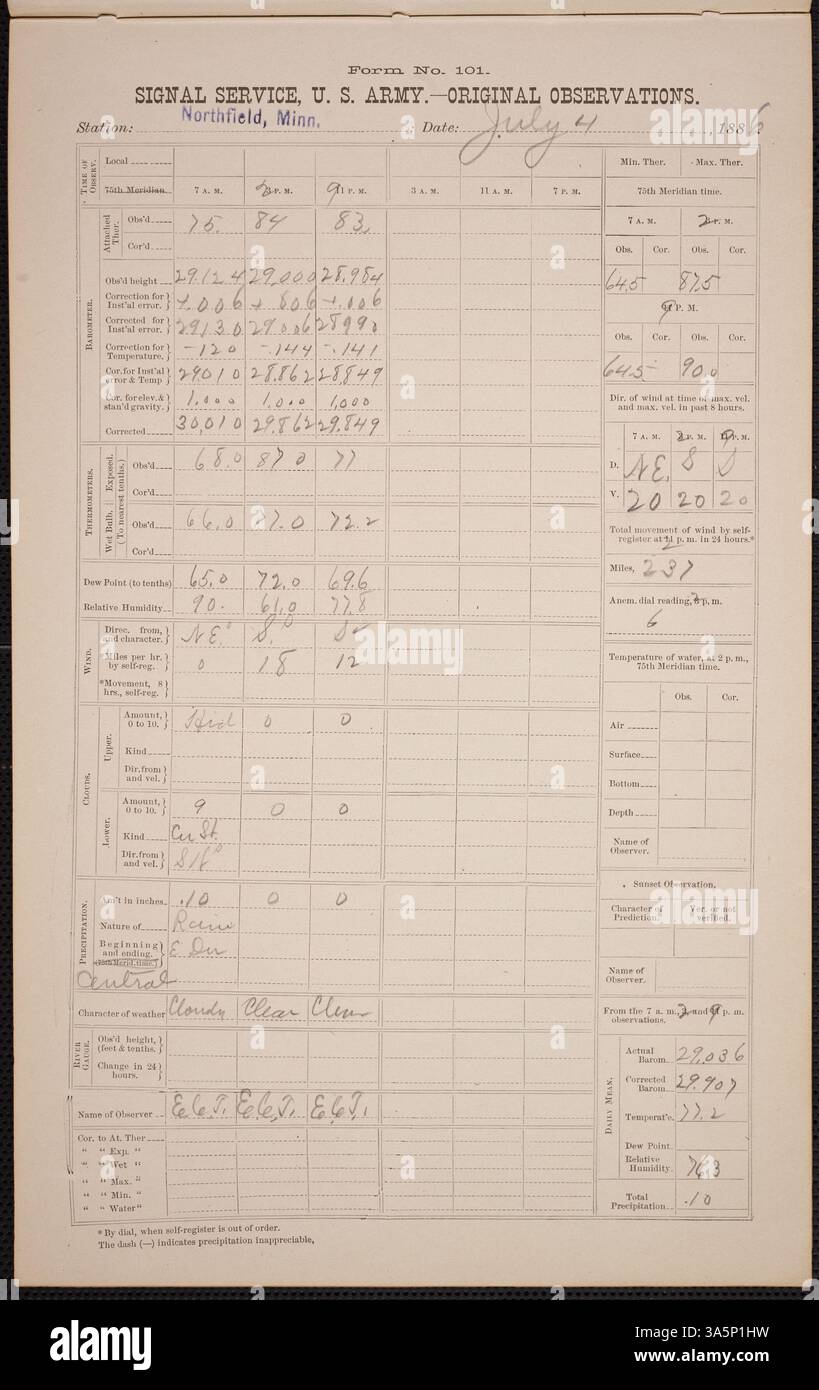 Form No. 101.
SIGNAL SERVICE, U. S. ARMY.—ORIGINAL OBSERVATIONS.
Station: Northfield, Minn. Date: July 4, 1886
TIME OF OBSERV.
Local
75th Meridian 7 A. M. 3 P. M. 11 P. M. 3 A. M. 11 A. M. 7 P. M.
2 9
Attached Ther.
Obs'd 75. 84 83
Cor'd
BAROMETER.
Obs'd height 29.124 29.000 28.984
Correction for Inst'al error. +.006 +.006 +.006
Corrected for Inst'al error. 29130 29006 28990
Correction for Temperature. -120 -.144 -.141
Cor. for Inst'al error & Temp 29.010 28.862 28.849
Cor. for elev. & stan'd gravity. 1.000 1.000 1,000
Corrected 30,010 29.862 29.849
THERMOMETERS.
Exposed.
(To nearest tenths.)
Obs'd 68.0 87.0 77
Cor'd
Wet Bulb.
Obs'd 66.0 77.0 72.2
Cor'd
Dew Point (to tenths) 65.0 72.0 69.6
Relative Humidity 90. 61.0 77.8
WIND.
Direc. from, and character. NE. S. S
*Miles per hr. by self-reg. 0 18 12
*Movement, 8 hrs., self-reg.
CLOUDS.
Upper.
Amount, 0 to 10. Hid 0 0
Kind
Dir. from and vel.
Lower.
Amount, 0 to 10. 9 0 0
Kind Cu St.
Dir. from and vel.
PRECIPITATION.
Am't in inches .10 0 0
Nature of Rain
Beginning and ending. E Du
(75th Merid. time.)
Central
Character of weather Cloudy Clear Clear
RIVER GAUGE.
Obs'd height, (feet & tenths.
Change in 24 hours.
Name of Observer E.C.T. E.C.T. E.C.T.
Cor. to At. Ther
" " Exp. "
" " Wet "
" " Max. "
" " Min. "
" " Water"
* By dial, when self-register is out of order.
The dash (—) indicates precipitation inappreciable.
Min. Ther. Max. Ther.
75th Meridian time.
7 A. M. 2 P. M.
Obs. Cor. Obs. Cor.
64.5 87.5
9 P. M.
Obs. Cor. Obs. Cor.
64.5 90.0
Dir. of wind at time of max. vel. and max. vel. in past 8 hours.
7 A. M. 2 P. M. 9 P. M.
D. NE. S S
V. 20 20 20
Total movement of wind by self-register at 11 p. m. in 24 hours.*
2
Miles, 237
Anem. dial reading, 2 p. m.
6
Temperature of water, at 2 p. m., 75th Meridian time.
Obs. Cor.
Air
Surface
Bottom
Depth
Name of Observer.
Sunset Observation.
Character of Prediction. Ver. or not verified.
Name of Observer.
From the 7 a. m., 3, and 11 p. m. observations.
2 9
DAILY MEAN.
Actual Barom. 29.036
Corrected Barom. 29.907
Temperat'e. 77.2
Dew Point.
Relative Humidity. 76.3
Total Precipitation. .10
alamy
Image ID: 3A5P1HW
www.alamy.com